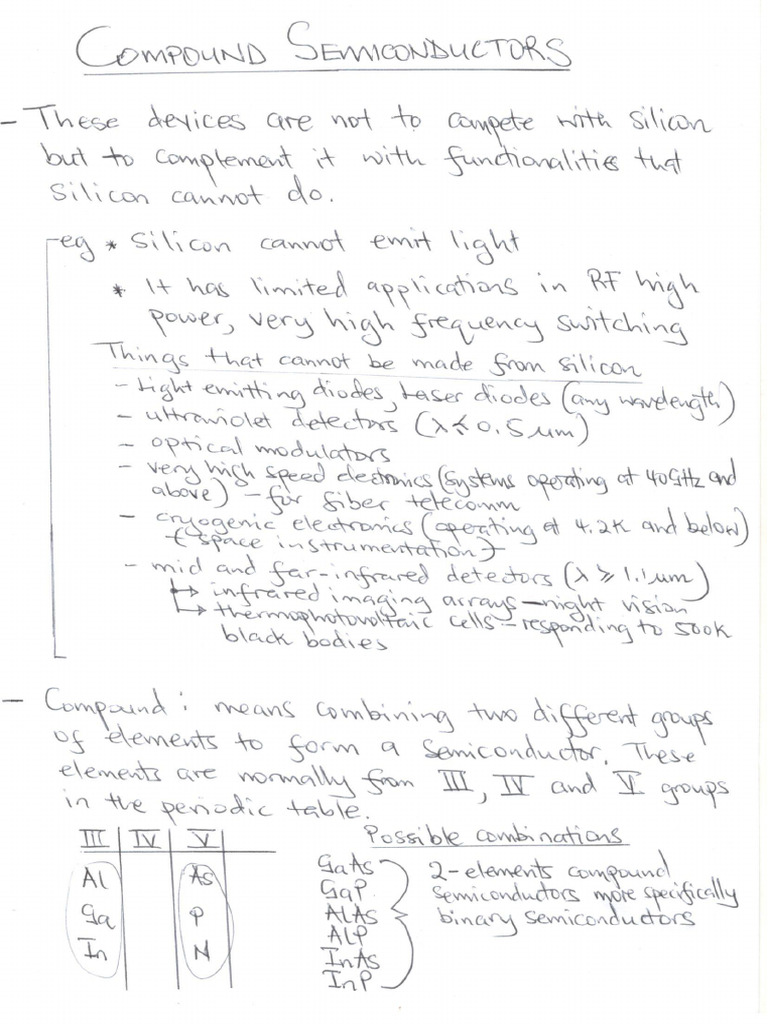 COMPOUND SEMICONDUCTORS
- These devices are not to compete with silicon
but to complement it with functionalities that
silicon cannot do.
eg * silicon cannot emit light
* It has limited applications in RF high
power, very high frequency switching
Things that cannot be made from silicon
- Light emitting diodes, Laser diodes (any wavelength)
- ultraviolet detectors (λ ≤ 0.5 μm)
- optical modulators
- very high speed electronics (systems operating at 40GHz and
above) - for fiber telecomm
- cryogenic electronics (operating at 4.2K and below)
{space instrumentation}
- mid and far-infrared detectors (λ ≥ 1.1 μm)
↳ infrared imaging arrays - night vision
↳ thermophotovoltaic cells - responding to 500K
black bodies
- Compound: means combining two different groups
of elements to form a semiconductor. These
elements are normally from III, IV and V groups
in the periodic table.
III | IV | V
Al As
Ga P
In N
Possible combinations
GaAs
GaP
AlAs
AlP
InAs
InP
2-elements compound
semiconductors more specifically
binary semiconductors